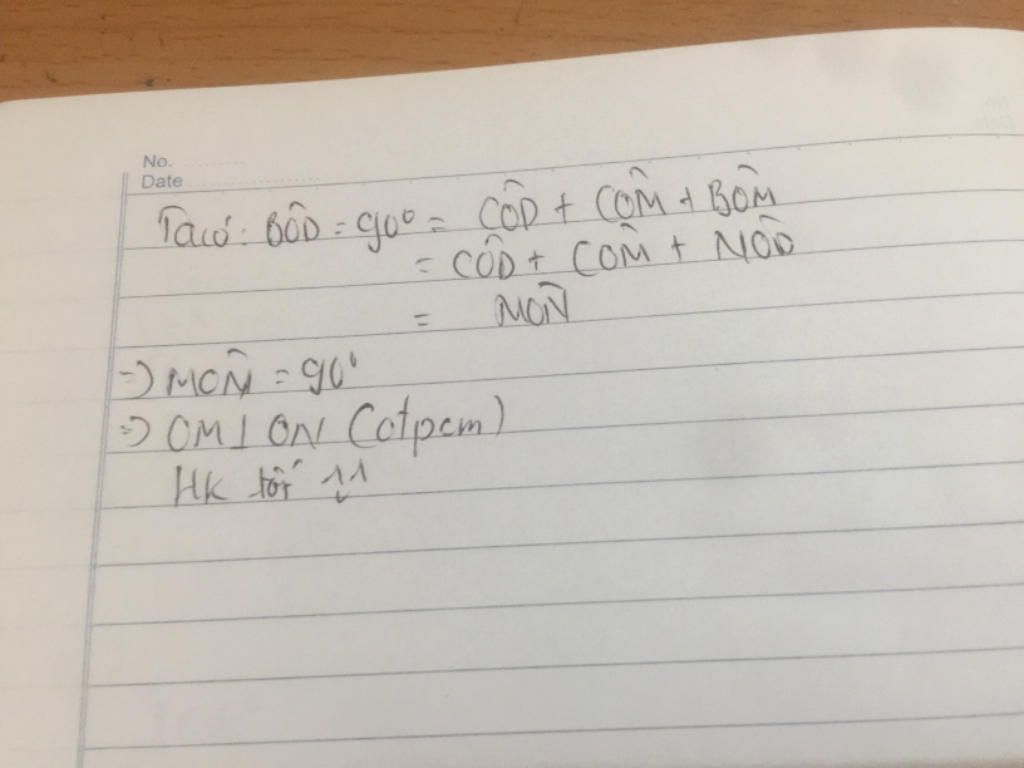 No.
Date
Ta có: BÔD = 90° = CÔD + CÔM + BÔM
= CÔD + CÔM + NÔD
= MÔN
=> MÔN = 90°
=> OM⊥ON (đtpcm)
HK tốt ^^